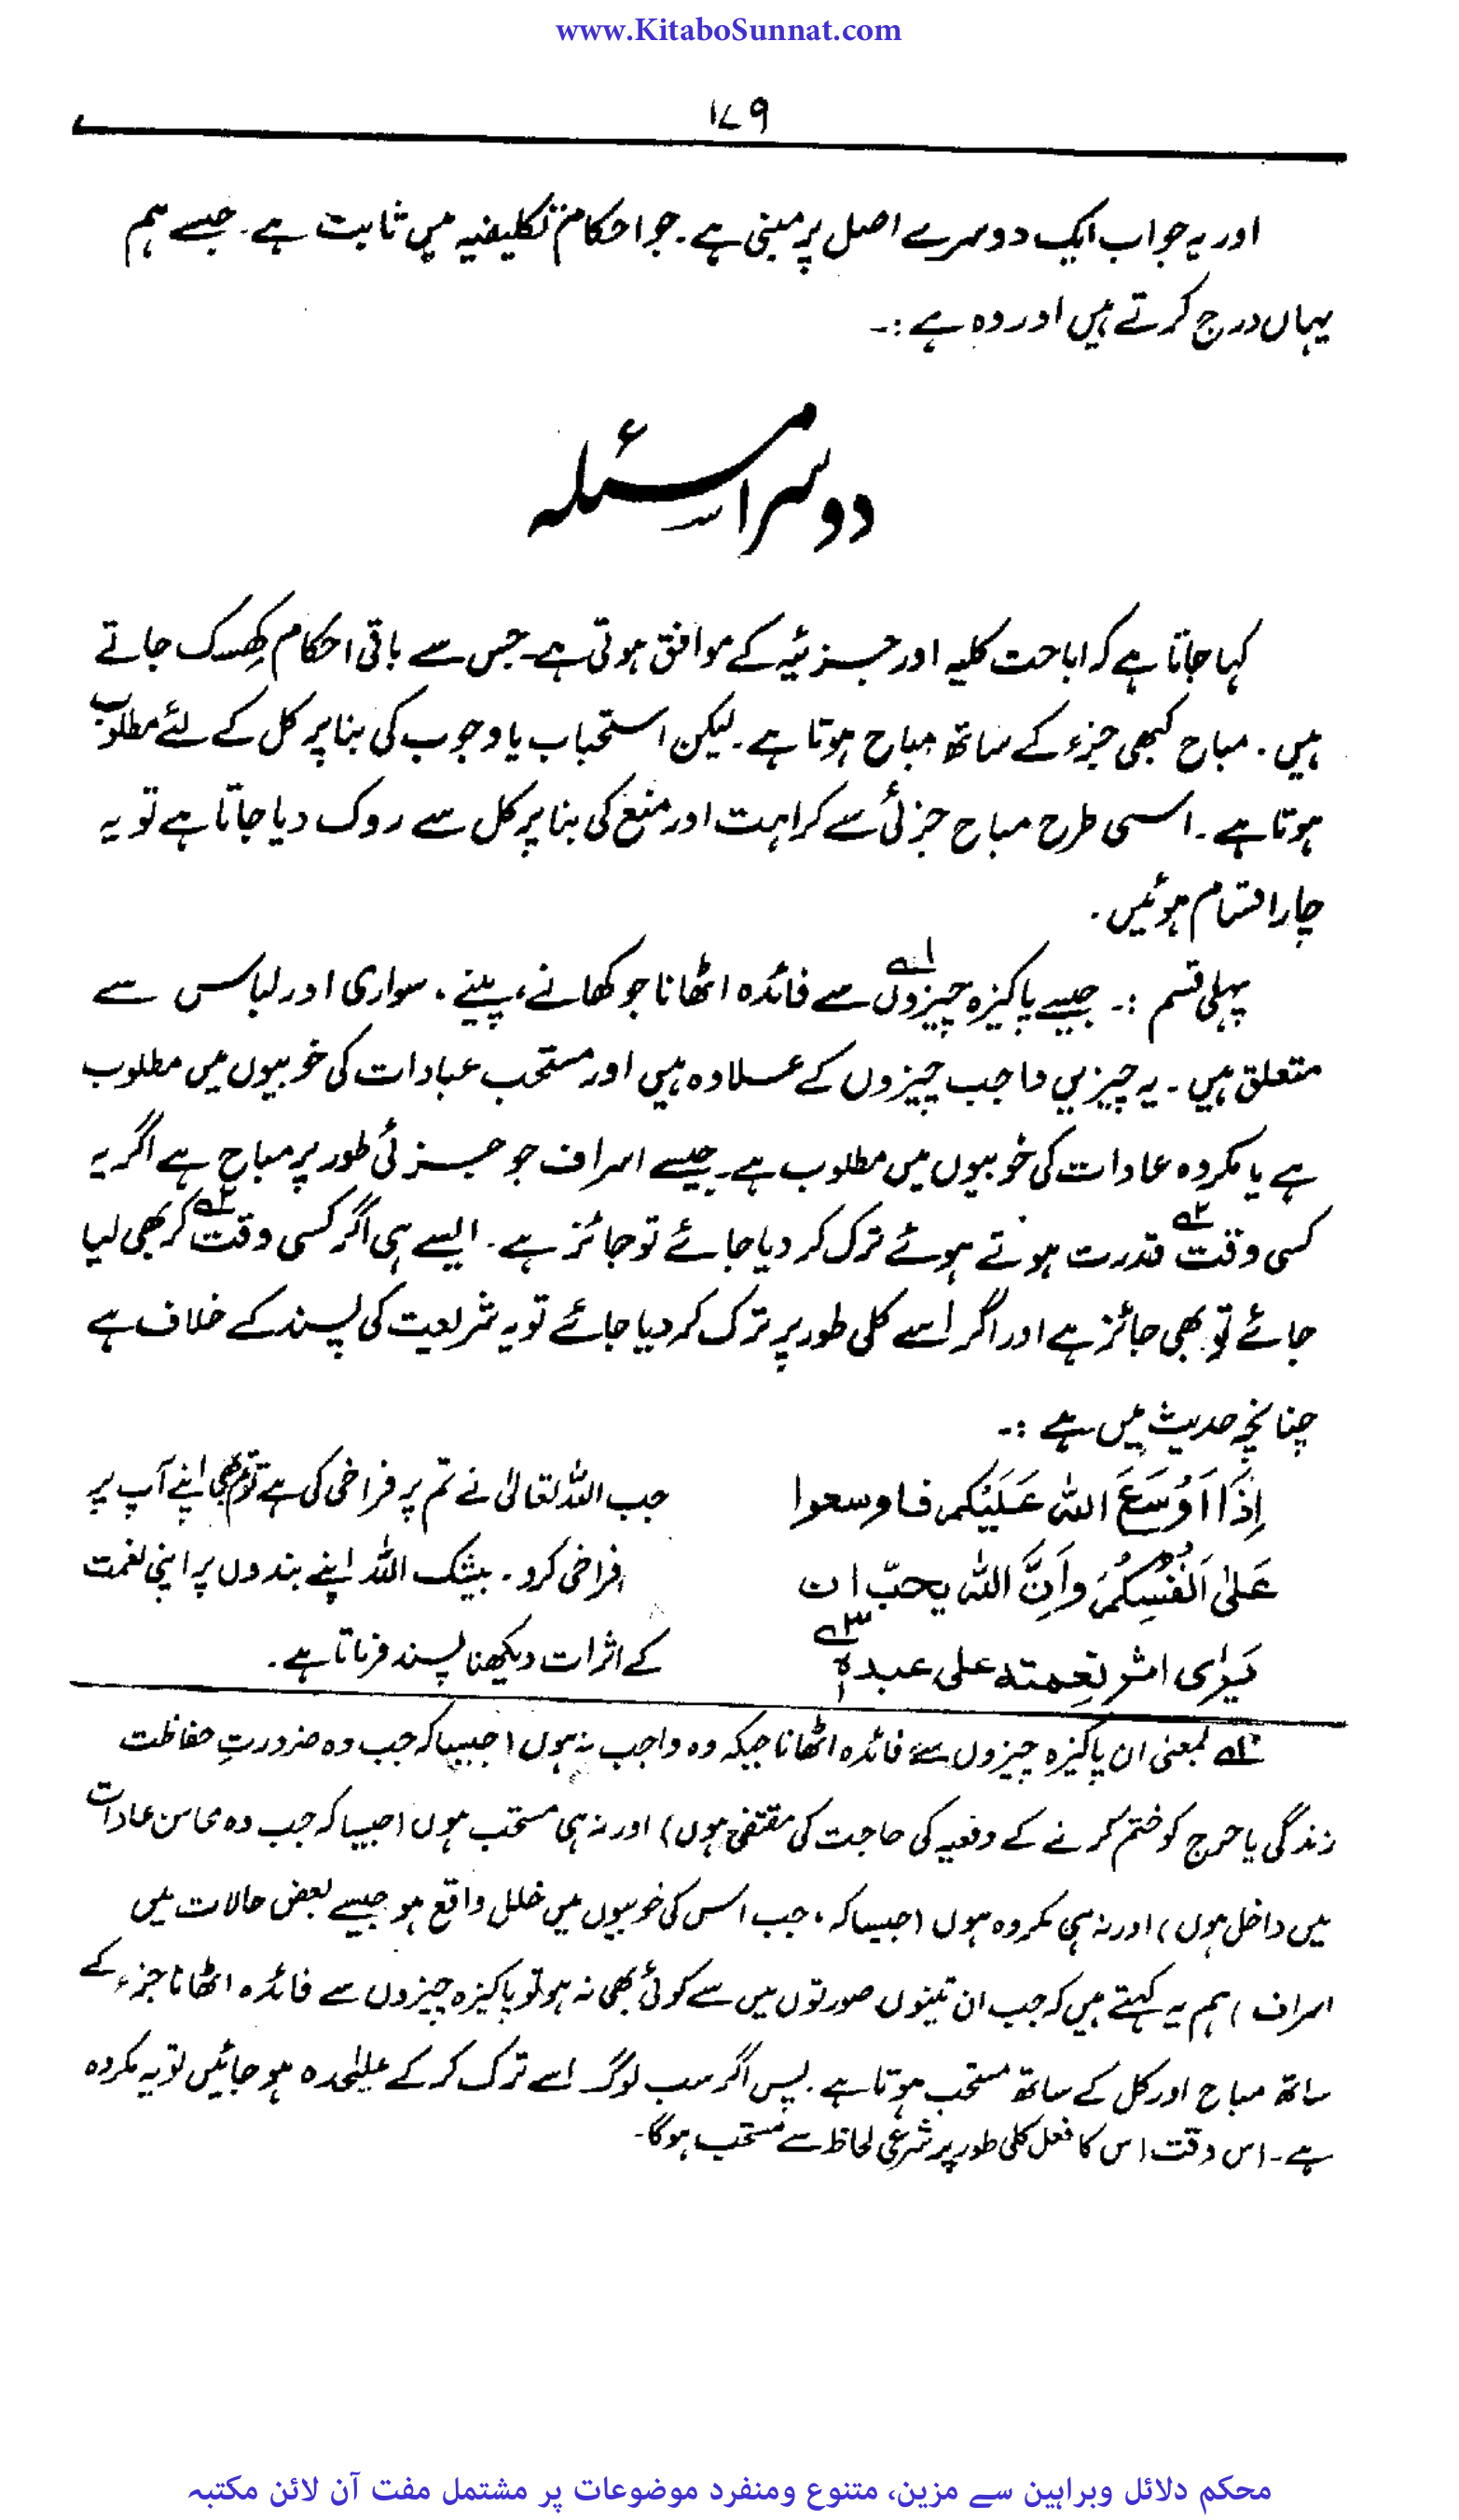 www.KitaboSunnat.com
۱۷۹
اور یہ جواب ایک دوسرے اصل پر مبنی ہے۔ جو احکام تکلیفیہ میں ثابت ہے۔ جیسے ہم
یہاں درج کرتے ہیں اور وہ ہے :۔
دوسرا مسئلہ
کہا جاتا ہے کہ اباحت کلیہ اور جزئیہ کے موافق ہوتی ہے۔ جس سے باقی احکام کھسک جاتے
ہیں۔ مباح کبھی جزء کے ساتھ مباح ہوتا ہے۔ لیکن استحباب یا وجوب کی بنا پر کل کے لئے مطلوب
ہوتا ہے۔ اسی طرح مباح جزئی سے کراہت اور منع کی بنا پر کل سے روک دیا جاتا ہے تو یہ
چار اقسام ہوئیں۔
پہلی قسم :۔ جیسے پاکیزہ چیزوں۱ سے فائدہ اٹھانا جو کھانے، پینے، سواری اور لباس سے
متعلق ہیں۔ یہ چیزیں واجب چیزوں کے علاوہ ہیں اور مستحب عبادات کی خوبیوں میں مطلوب
ہے یا مکروہ عادات کی خوبیوں میں مطلوب ہے۔ جیسے اسراف جو جزئی طور پر مباح ہے اگر یہ
کسی وقت۲ قدرت ہوتے ہوئے ترک کر دیا جائے تو جائز ہے۔ ایسے ہی اگر کسی وقت کر بھی لیا
جائے تو بھی جائز ہے اور اگر اسے کلی طور پر ترک کر دیا جائے تو یہ شریعت کی پسند کے خلاف ہے
چنانچہ حدیث میں ہے :۔
اِذَا اَوْسَعَ اللہ عَلَیْکم فاوسعوا
عَلیٰ اَنْفُسِکُمْ واَنَّ اللہ یحبّ ان
یَرٰی اثر نِعمتہ علی عبدہٖ۳
جب اللہ تعالیٰ نے تم پر فراخی کی ہے تو تم بھی اپنے آپ پر
فراخی کرو۔ بیشک اللہ اپنے بندوں پر اپنی نعمت
کے اثرات دیکھنا پسند فرماتا ہے۔
۱ے بمعنی ان پاکیزہ چیزوں سے فائدہ اٹھانا جبکہ وہ واجب نہ ہوں (جیسا کہ جب وہ ضرورتِ حفاظت
زندگی یا حرج کو ختم کرنے کے دفعیہ کی حاجت کی مقتضی ہوں) اور نہ ہی مستحب ہوں (جیسا کہ جب وہ محاسن عادات
میں داخل ہوں) اور نہ ہی مکروہ ہوں (جیسا کہ، جب اس کی خوبیوں میں خلل واقع ہو جیسے بعض حالات میں
اسراف) ہم یہ کہتے ہیں کہ جب ان تینوں صورتوں میں سے کوئی بھی نہ ہو تو پاکیزہ چیزوں سے فائدہ اٹھانا جزء کے
ساتھ مباح اور کل کے ساتھ مستحب ہوتا ہے۔ پس اگر سب لوگ اسے ترک کر کے علیٰحدہ ہو جائیں تو یہ مکروہ
ہے۔ اس وقت اس کا فعل کلی طور پر شرعی لحاظ سے مستحب ہوگا۔
محکم دلائل وبراہین سے مزین، متنوع ومنفرد موضوعات پر مشتمل مفت آن لائن مکتبہ